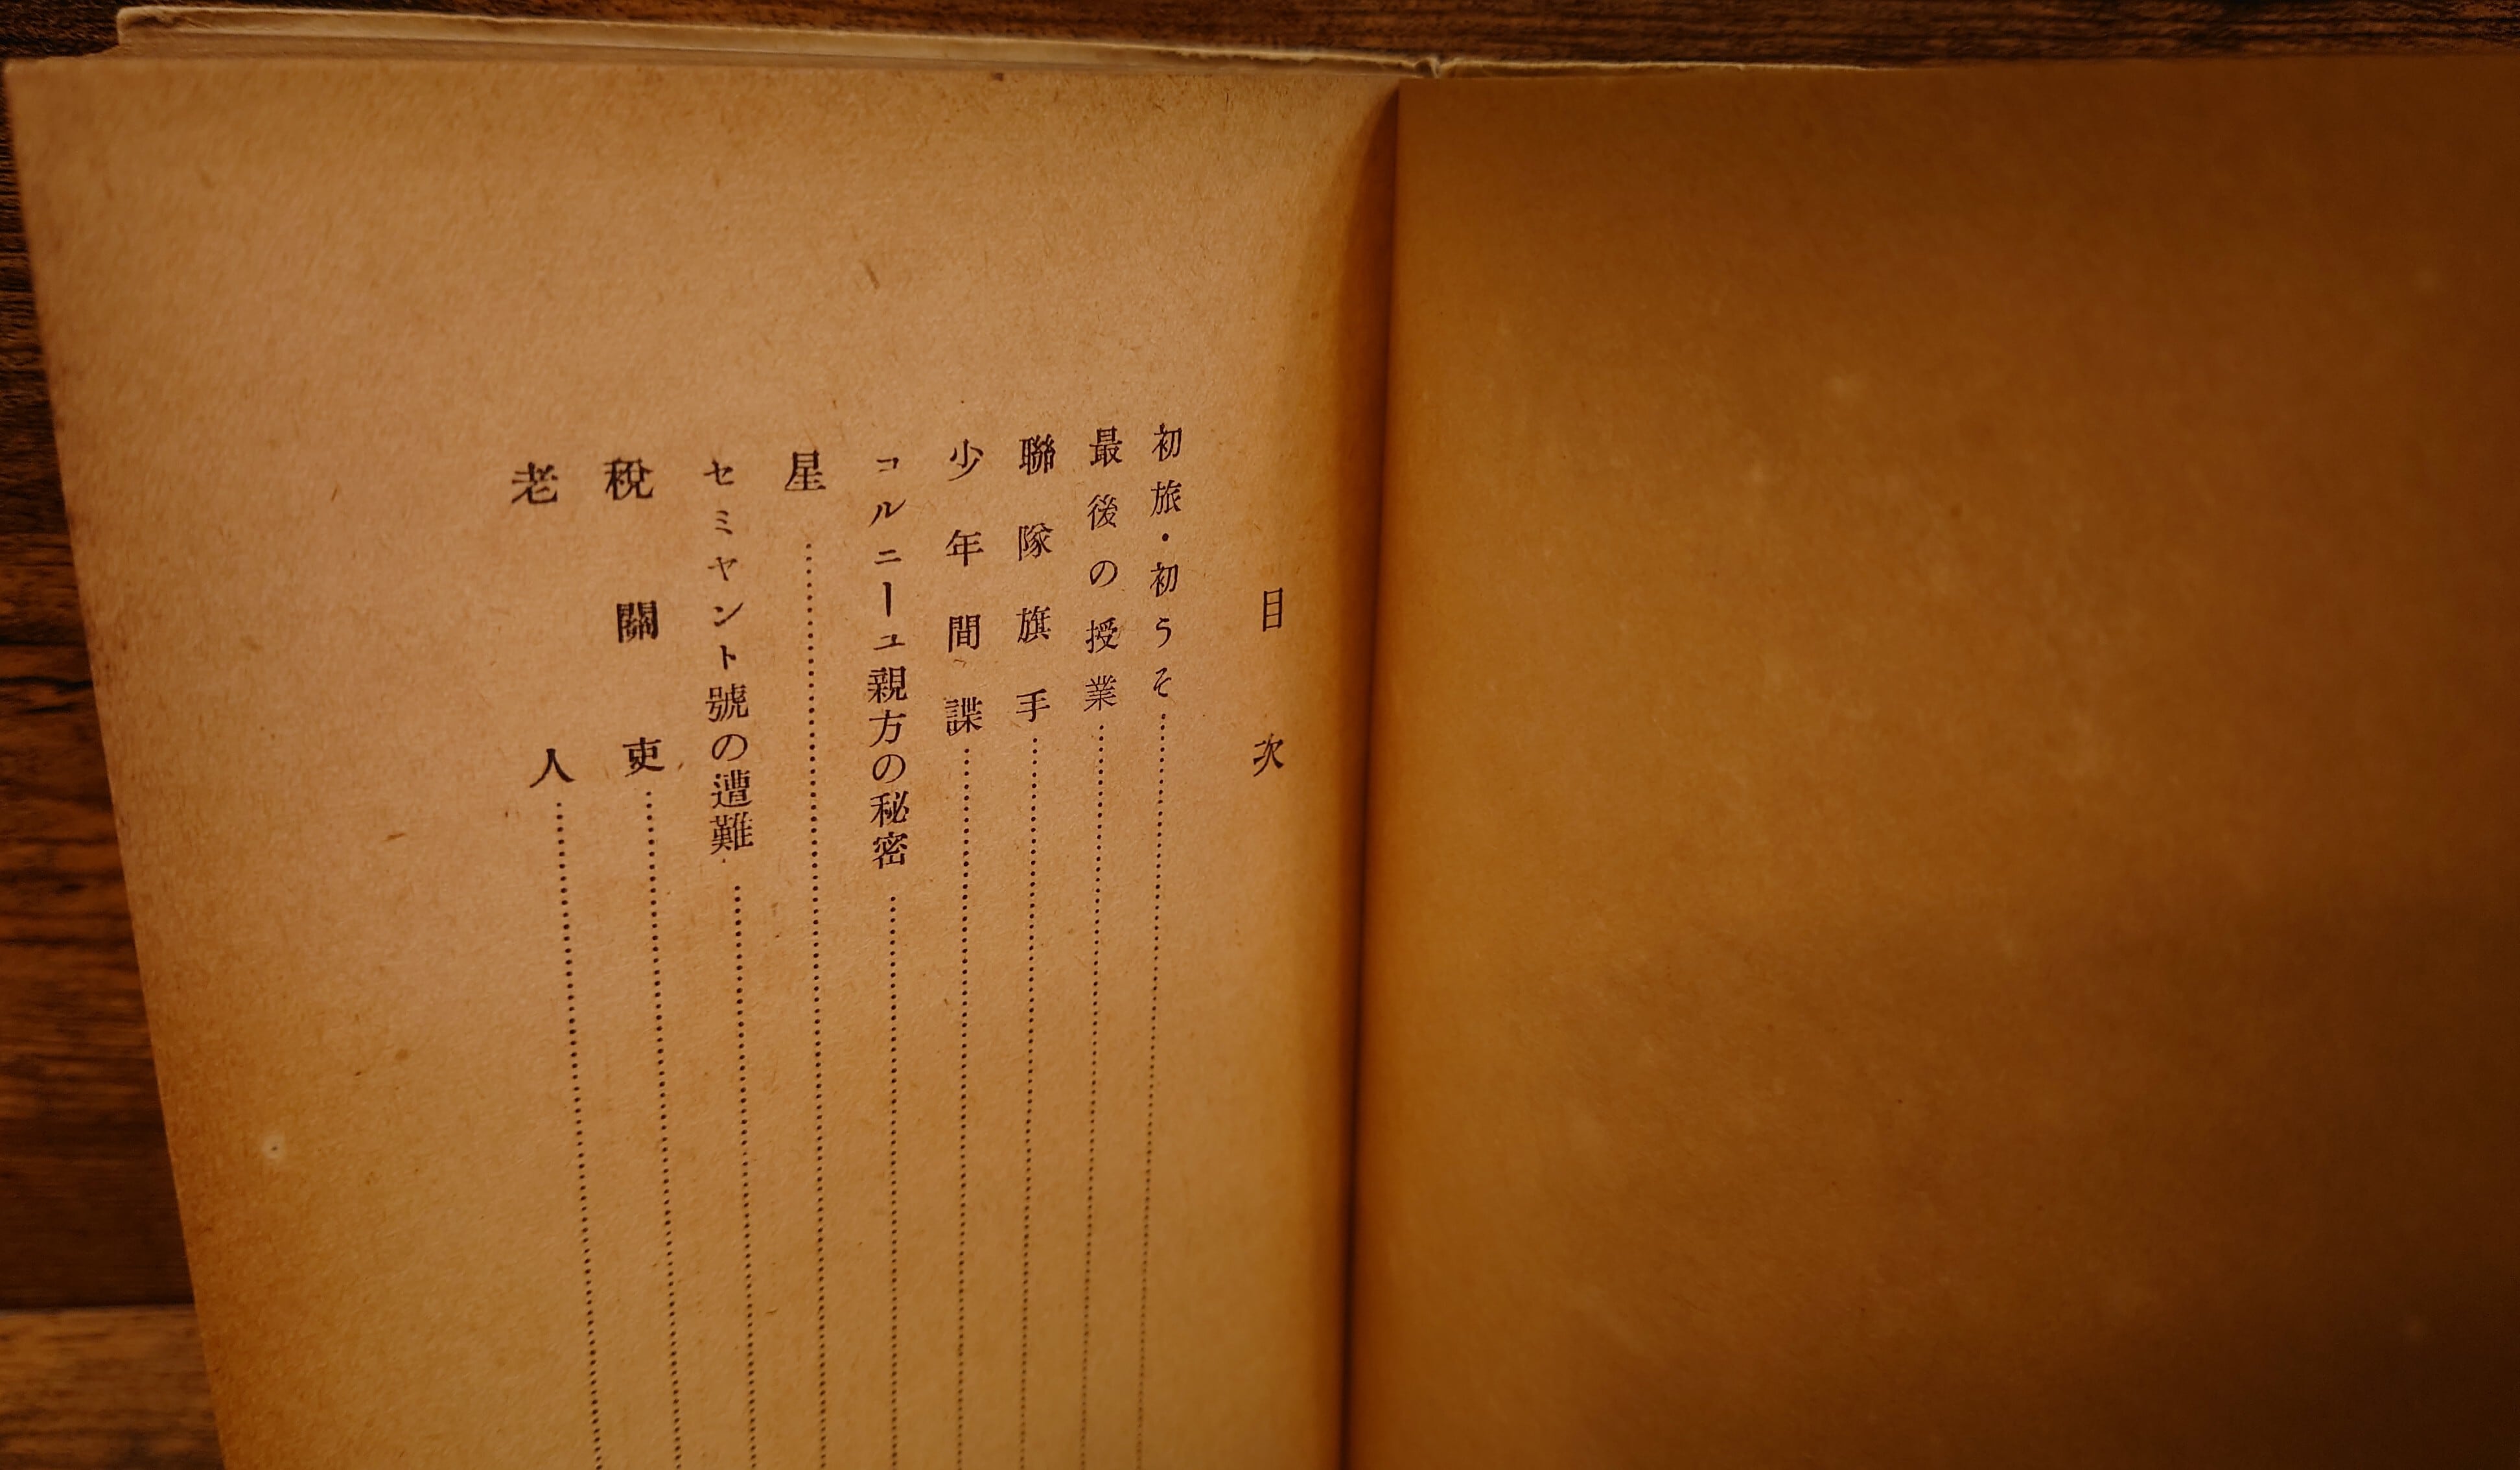 目次
初旅・初うそ
最後の授業
聯隊旗手
少年間諜
コルニーユ親方の秘密
星
セミヤント號の遭難
稅關吏
老人